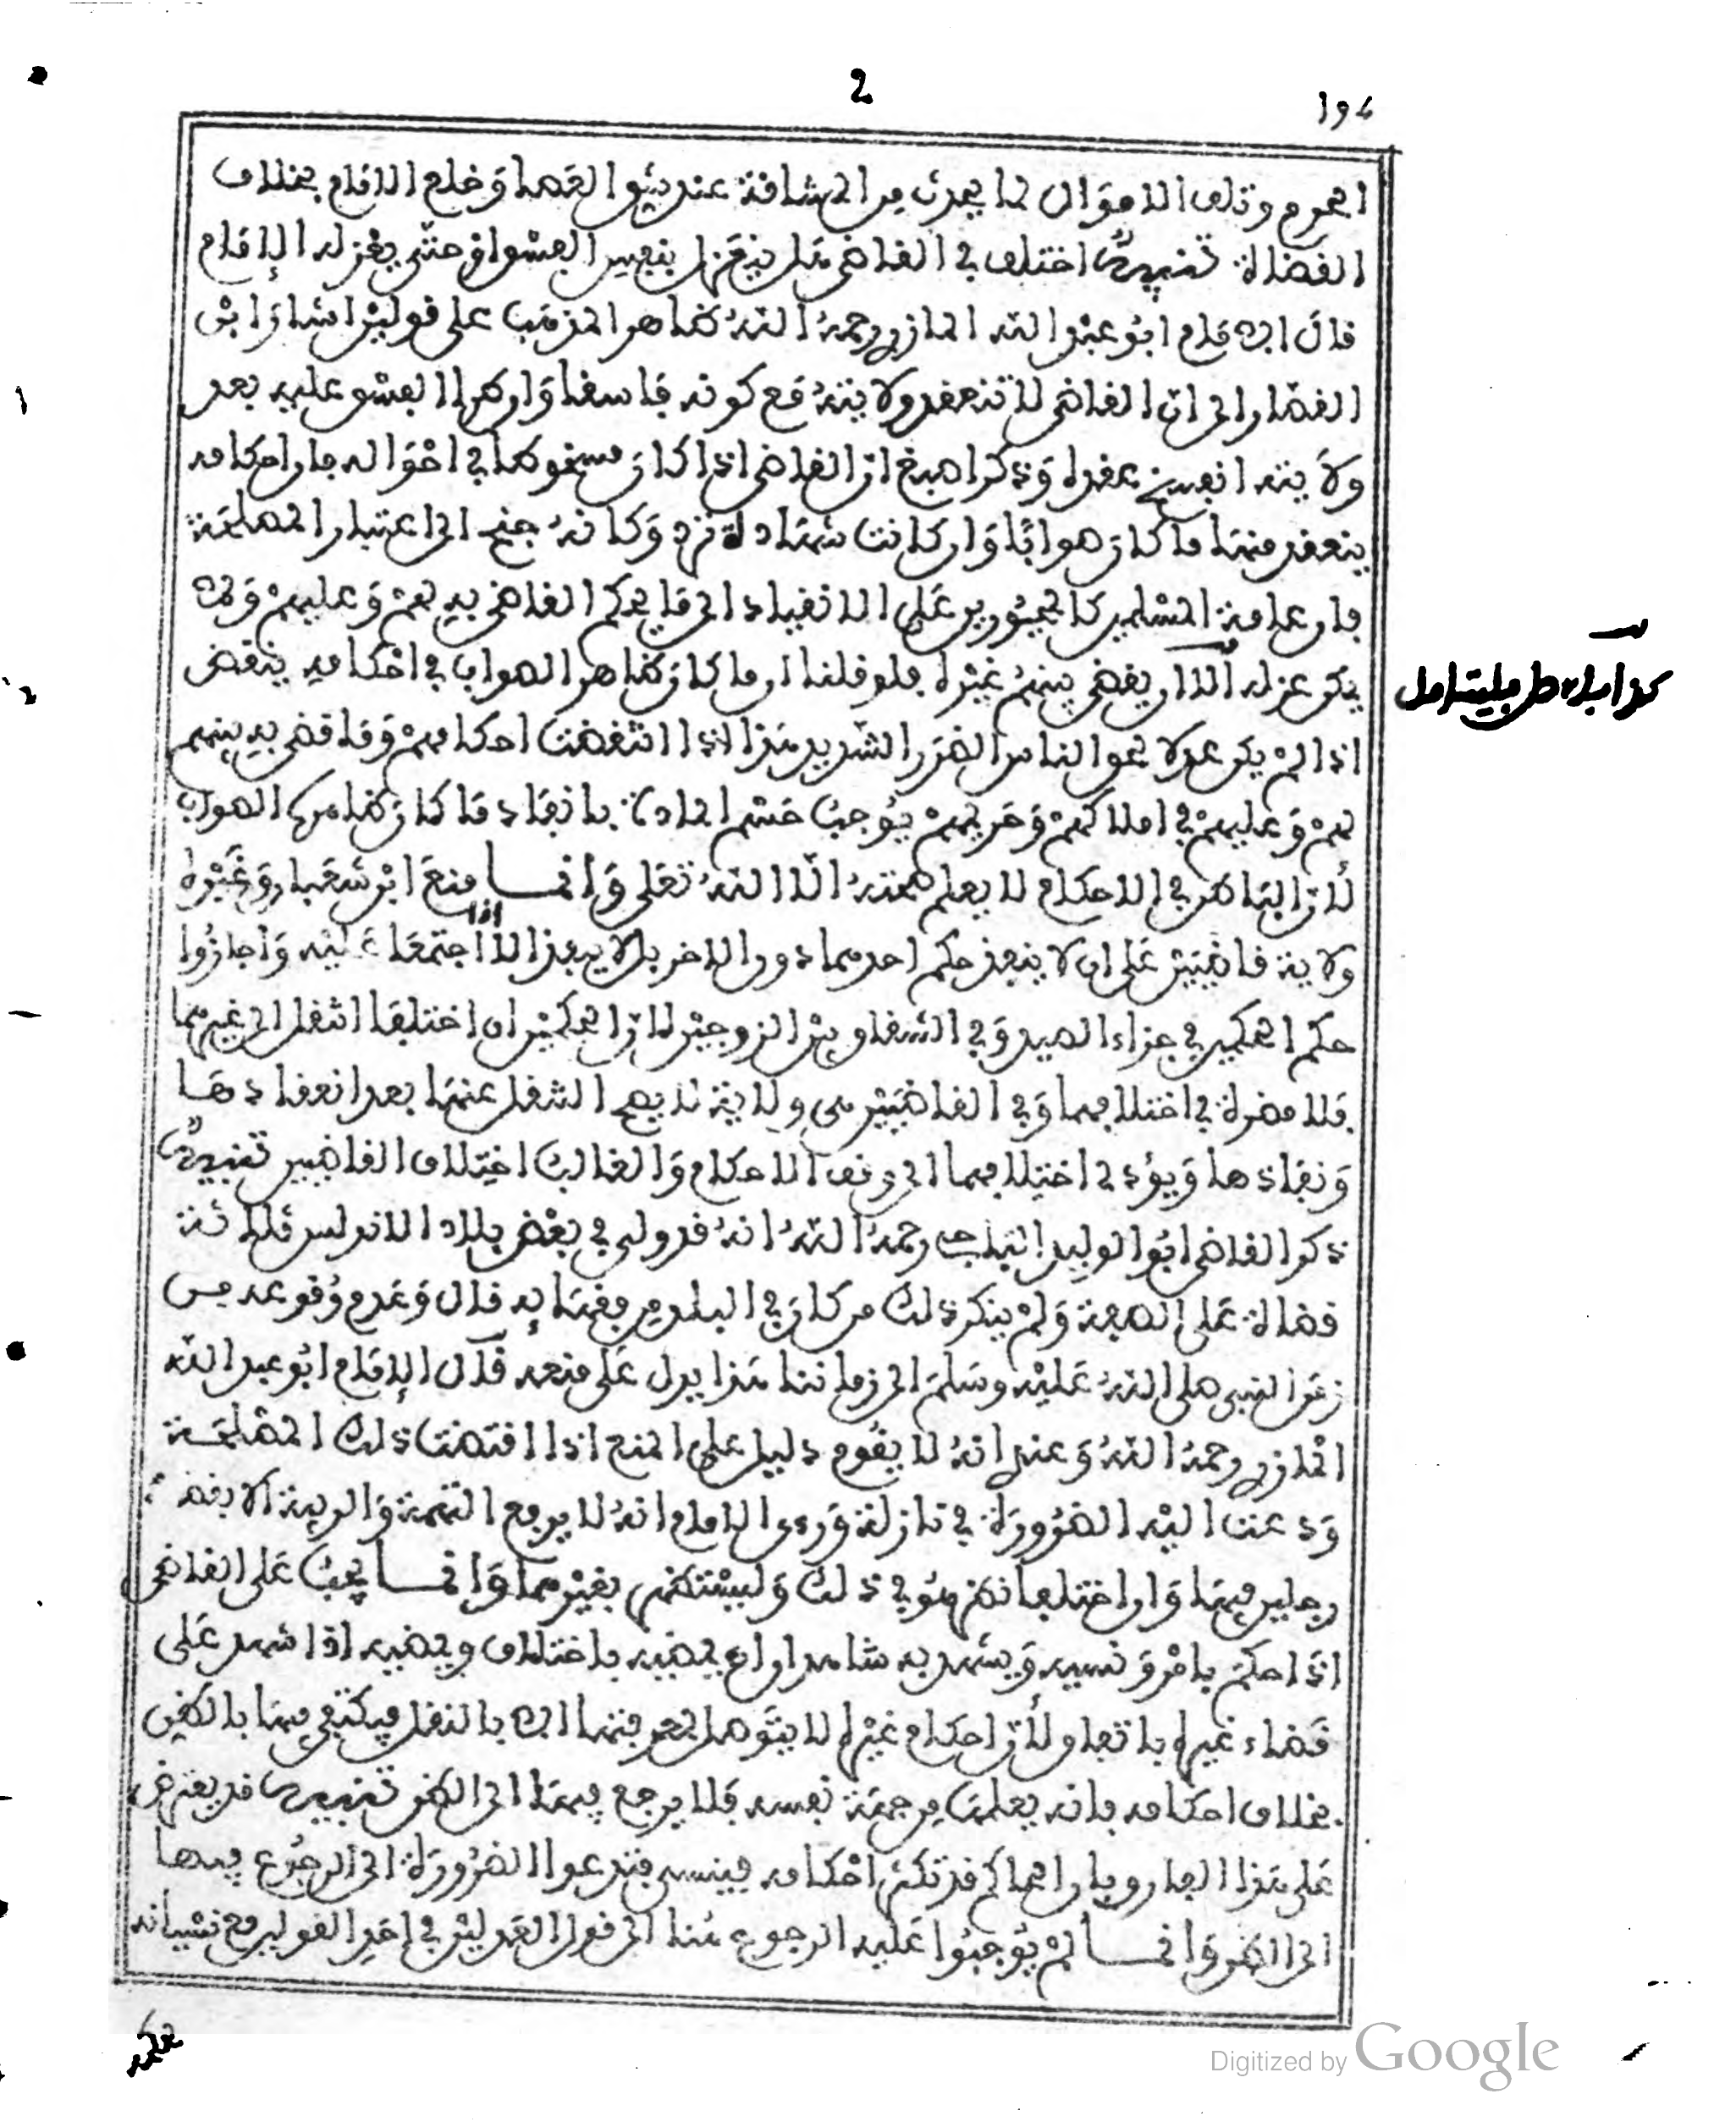 2
194
الهروج وتلف الاموال لما يحدث من المشاقة عند شق العصا وخلع الامام بخلاف
القضاة تنبيه اختلف في القاضي هل ينعزل بنفس الفسق او حتى يعزله الإمام
قال الإمام أبو عبد الله المازري رحمهُ اللهُ ظاهر المذهب على قولين اشار ابن
القصار الى ان القاضي لا تنعقد ولايته مع كونه فاسقا وان طرا الفسق عليه بعد
ولايته انفسخ عقده وذكر اصبغ ان القاضي اذا كان مسخوطا في احواله فان احكامه
ينفذ منها ما كان صوابا وان كانت شهادته ترد وكانه جنح الى اعتبار المصلحة
فان عامة المسلمين كالمجبورين على الانقياد الى ما يحكم القاضي به لهم وعليهم ولم
يكن عزله الا ان يقضي بينهم غيره فلو قلنا ان ما كان ظاهر الصواب في احكامه ينقض
اذا لم يكن عدلا لحق الناس الضرر الشديد هذا اذا انتقضت احكامهم وما قضى به بينهم
لهم وعليهم في املاكهم وحريمهم يوجب حسم المادة بانفاد ما كان ظاهره الصواب
لأن الباطن في الاحكام لا يعلم صحته الا اللهُ تعلى وانما منع ابن شعبان وغيره
ولاية قاضيين على ان لا ينفذ حكم احدهما دون الاخر بل لا ينفذ الا اذا اجتمعا عليه واجازوا
حكم الحكمين في جزاء الصيد وفي الشقاق بين الزوجين لان الحكمين ان اختلفا انتقل الى غيرهما
فلا مضرة في اختلافهما وفي القاضيين هي ولاية لا يصح التنقل عنها بعد انعقادها
ونفاذها ويؤدي اختلافهما الى وقف الاحكام والغالب اختلاف القاضيين تنبيه
ذكر القاضي ابو الوليد الباجي رحمهُ اللهُ انه قد ولي في بعض بلاد الاندلس ثلاثة
قضاة على الصفة ولم ينكر ذلك من كان في البلد من فقهائه قال وعدم وقوعه من
زمن النبي صلى اللهُ عليه وسلم الى زماننا هذا يدل على منعه قال الإمام أبو عبد الله
المازري رحمهُ اللهُ وعندي انه لا يقوم دليل على المنع اذا اقتضت ذلك المصلحة
ودعت اليه الضرورة في نازلة ورءى الامام انه لا يرفع التهمة والريبة الا بقضاء
رجلين فيها وان اختلفا نظر هو في ذلك وليستظهر بغيرهما وانما يجب على القاضي
اذا حكم بامر ونسيه ويشهد به شاهدان ان يمضيه باختلاف ويمضيه اذا شهد على
قضاء غيره باتفاق ولأن احكام غيره لا يتوصل لمعرفتها الا بالنقل فيكتفي فيها بالظن
بخلاف احكامه فانه يعلمها من جهة نفسه فلا يرجع فيها الى الظن تنبيه قد يعترض
على هذا الفارق بان الحاكم قد تكثر احكامه فينسى فتدعوا الضرورة الى الرجوع فيها
الى الظن وانما لم يوجبوا عليه الرجوع هنا الى قول العدلين في احد القولين مع نسيانه